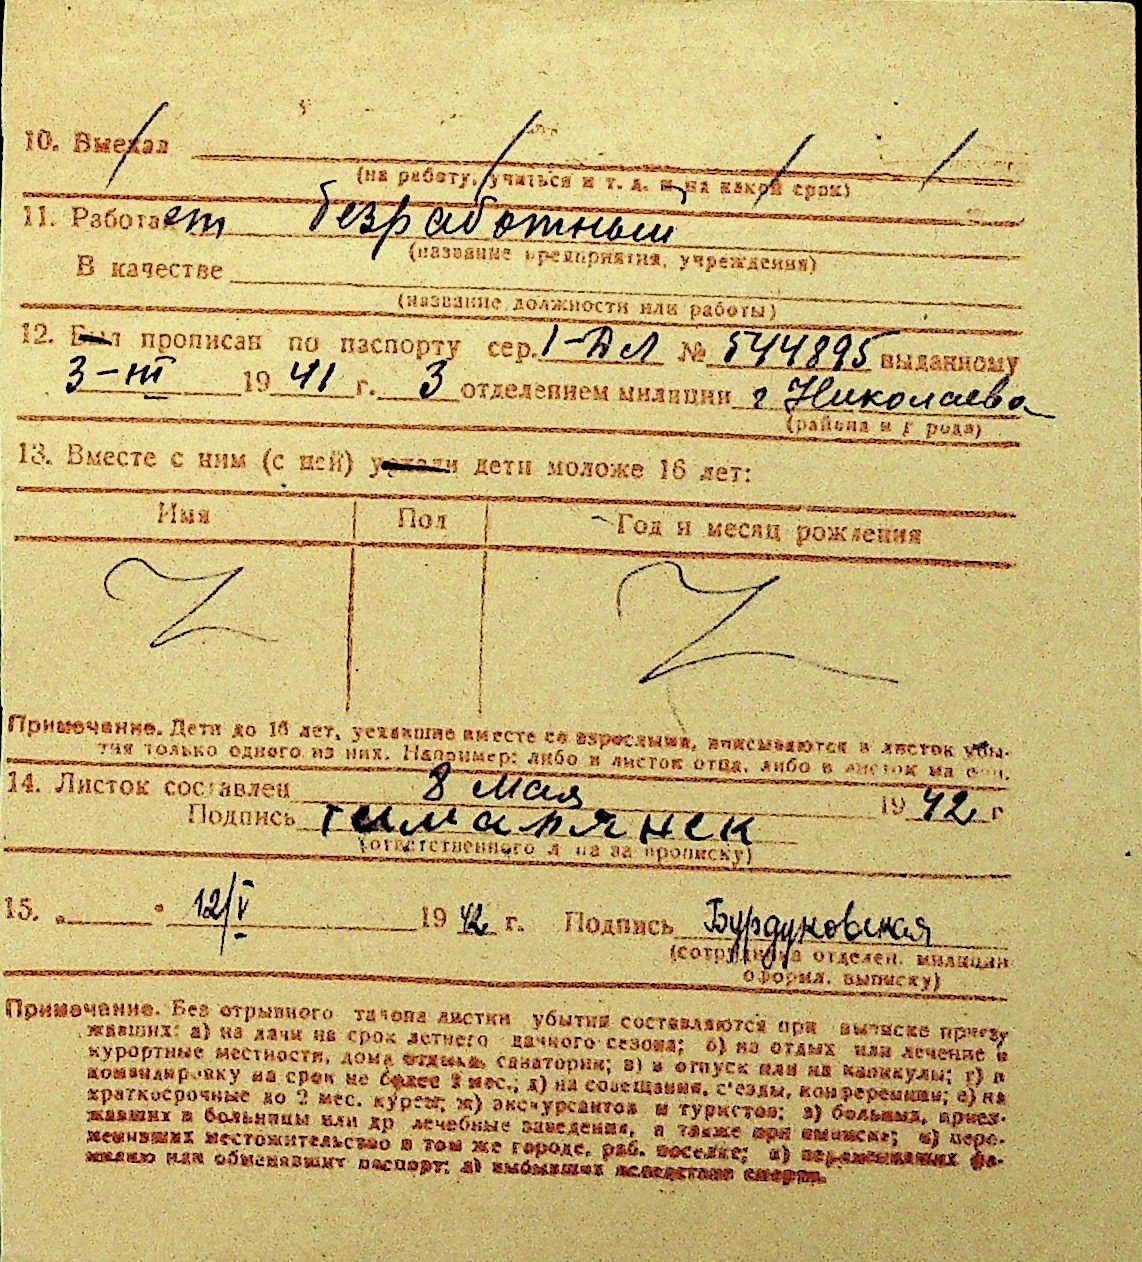 10. Выехал
(на работу, учиться и т. д. и на какой срок)
11. Работает безработный
(название предприятия, учреждения)
В качестве
(название должности или работы)
12. Был прописан по паспорту сер. 1-ДЛ № 544895 выданному
3-III 1941 г. 3 отделением милиции г Николаева
(района и города)
13. Вместе с ним (с ней) уехали дети моложе 16 лет:
Имя Пол Год и месяц рождения
Примечание. Дети до 16 лет, уехавшие вместе со взрослыми, вписываются в листок убы-
тия только одного из них. Например: либо в листок отца, либо в листок матери.
14. Листок составлен 8 мая 1942 г
Подпись
(ответственного лица за прописку)
15. „ “ 12/V 1942 г. Подпись Бурдуковская
(сотрудника отделен. милиции
оформл. выписку)
Примечание. Без отрывного талона листки убытия составляются при выписке приезжавших
жавших: а) на дачи на срок летнего дачного сезона; б) на отдых или лечение в
курортные местности, дома отдыха, санатории; в) в отпуск или на каникулы; г) в
командировку на срок не более 2 мес.; д) на совещания, с'езды, конференции; е) на
краткосрочные до 2 мес. курсы; ж) экскурсантов и туристов; з) больных, приез-
жавших в больницы или др лечебные заведения, а также при выписке; и) пере-
менивших местожительство в том же городе, раб. поселке; к) переменивших фа-
милию или обменявших паспорт; л) выбывших вследствие смерти.